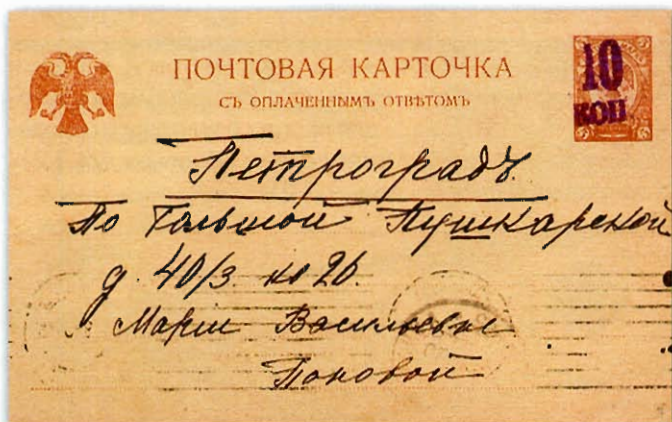 ПОЧТОВАЯ КАРТОЧКА
СЪ ОПЛАЧЕННЫМЪ ОТВѢТОМЪ
10
КОП
Петроградъ.
По Большой Пушкарской
д. 40/3. кв 26.
Маріи Васильевне
Поповой